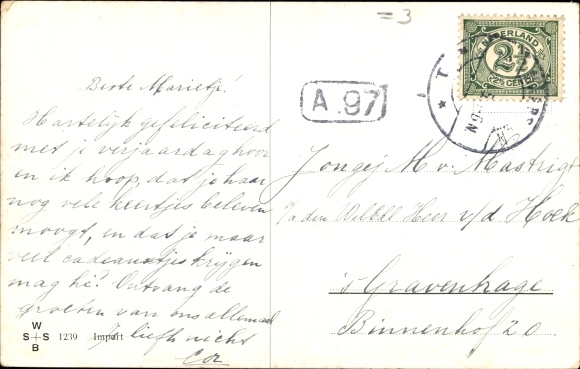 =3
NEDERLAND
2½
2½ CENT
A.97
Beste Marietje!
Hartelijk gefeliciteerd
met je verjaardag hoor
en ik hoop, dat je haar
nog vele keertjes beleven
moogt, en dat je maar
veel cadeautjes krijgen
mag hè? Ontvang de
groeten van ons allemaal
liefh nicht
Cor
Jongej M v. Mastrigt
p/a den WelEd. Heer v/d Hoek
's Gravenhage
Binnenhof 20
W
S+S
B
1239 Import